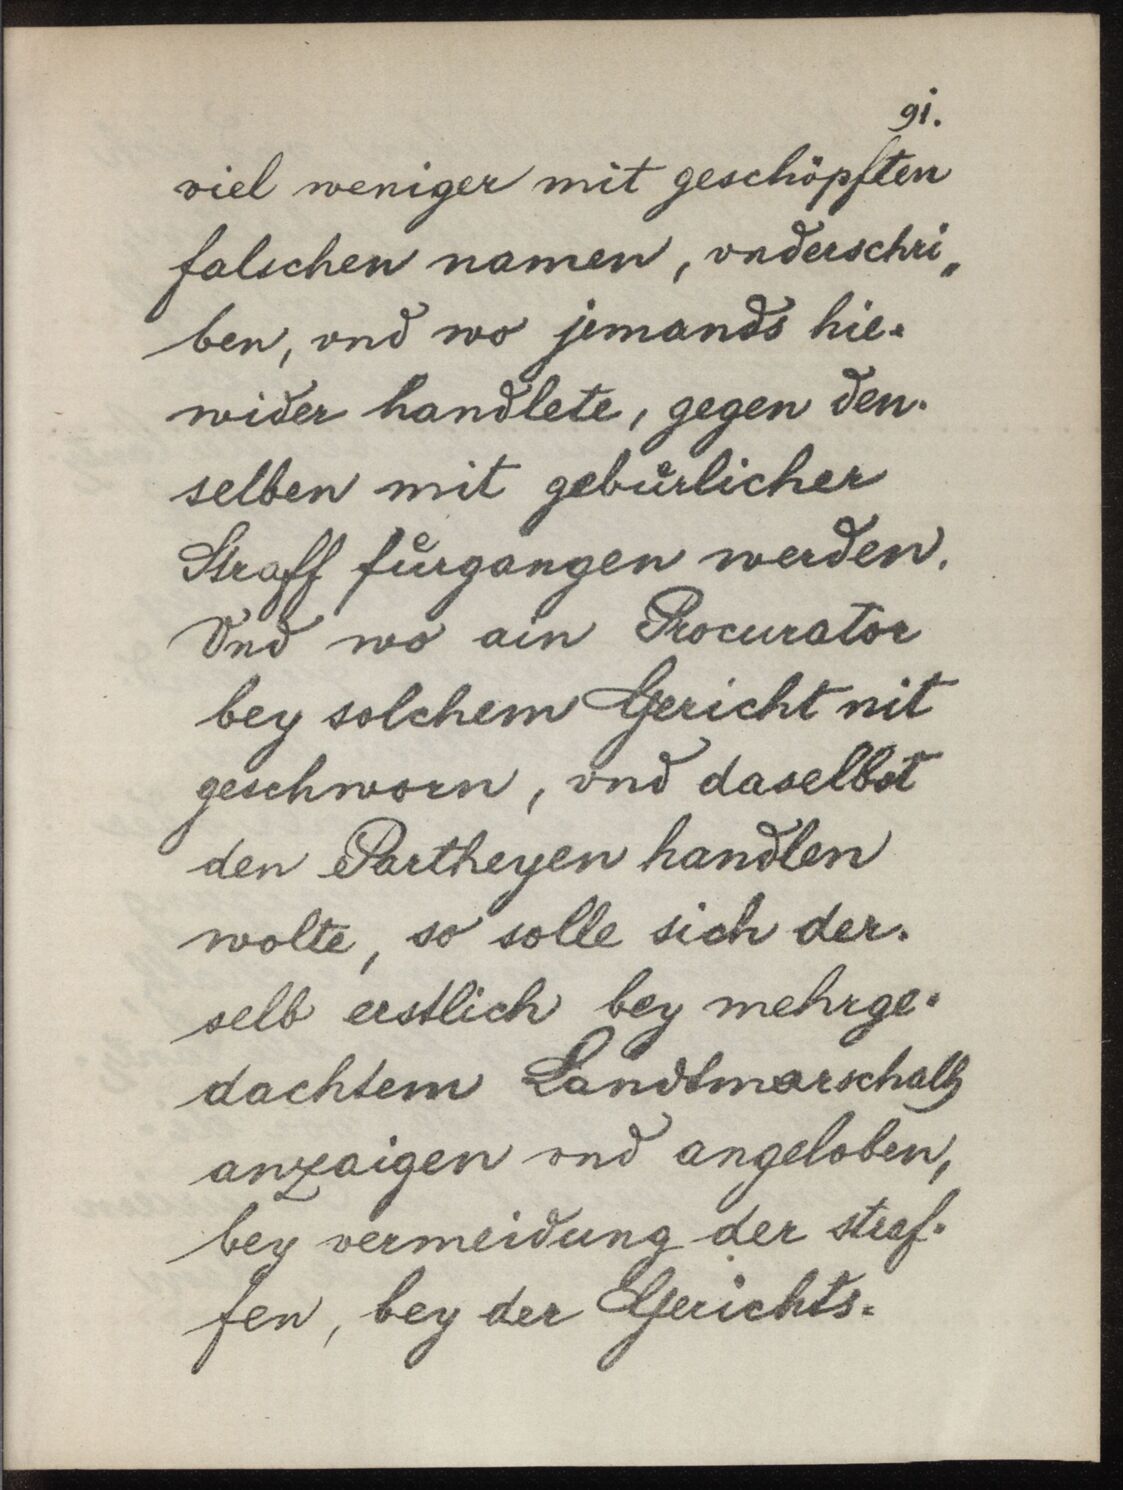 91.
viel weniger mit geschöpften
falschen namen, vnderschri„
ben, vnd wo jemands hie-
wider handlete, gegen den-
selben mit gebuͤrlicher
Straff fuͤrgangen werden.
Vnd wo ain Procurator
bey solchem Gericht nit
geschworn, vnd daselbst
den Partheyen handlen
wolte, so solle sich der-
selb erstlich bey mehrge-
dachtem Landtmarschalh
anzaigen vnd angeloben,
bey vermeidung der straf-
fen, bey der Gerichts-